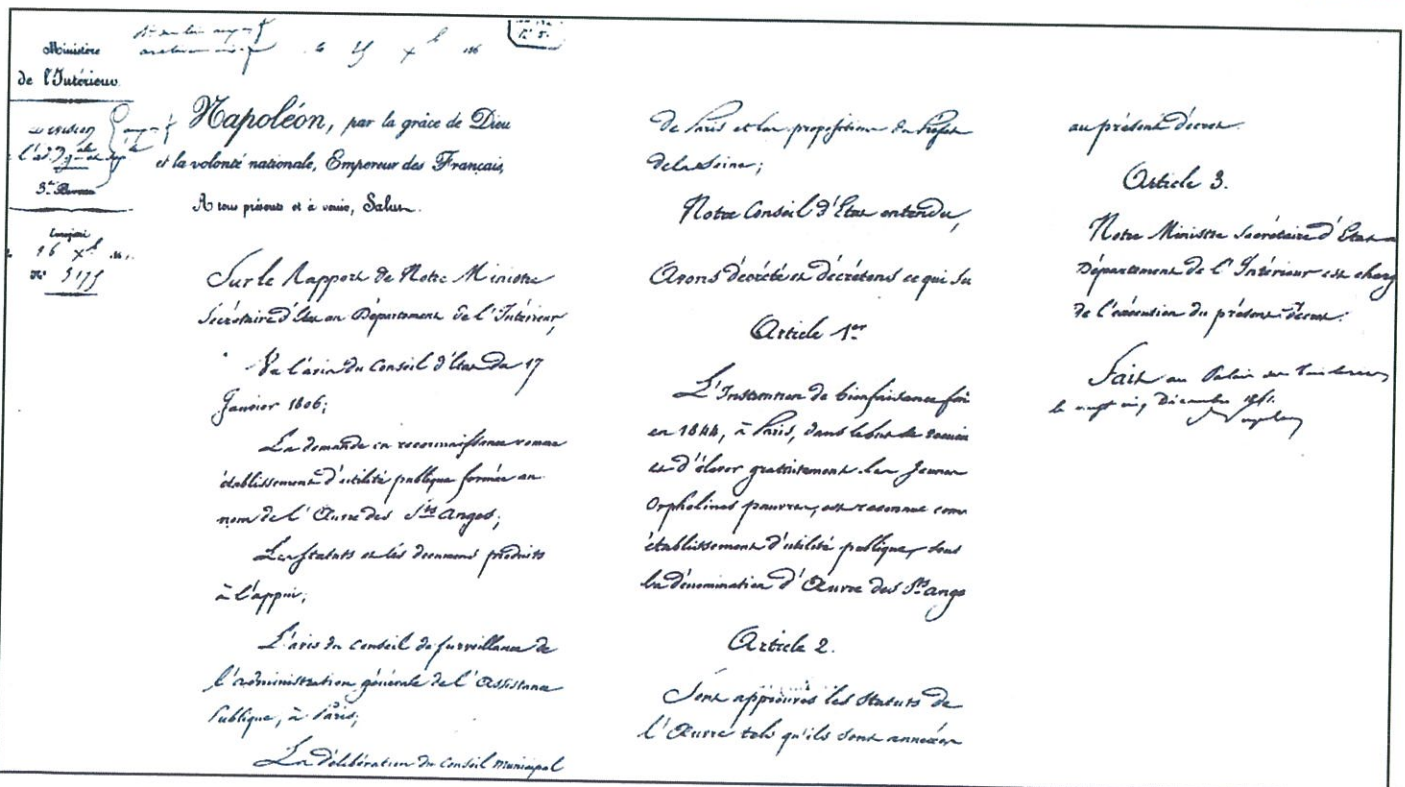 Ministère
de l'Intérieur.
3e Bureau
16 Xbre
No 5175
Napoléon, par la grâce de Dieu
et la volonté nationale, Empereur des Français,
A tous présents et à venir, Salut.
Sur le Rapport de Notre Ministre
Secrétaire d'Etat au Département de l'Intérieur,
Vu l'avis du Conseil d'Etat du 17
Janvier 1806;
La demande en reconnaissance comme
établissement d'utilité publique formée au
nom de l'Œuvre des Sts Anges;
Les statuts et les documens produits
à l'appui;
L'avis du conseil de surveillance de
l'administration générale de l'Assistance
Publique, à Paris;
La délibération du Conseil municipal
de Paris et la proposition du Préfet
de la Seine;
Notre Conseil d'Etat entendu,
Avons décrété et décrétons ce qui su
Article 1er
L'Institution de bienfaisance fon
en 1844, à Paris, dans le but de
et d'élever gratuitement les Jeunes
Orphelines pauvres, est reconnue com
établissement d'utilité publique, sous
la dénomination d'Œuvre des Sts ange
Article 2.
Sont approuvés les statuts de
l'Œuvre tels qu'ils sont annexés
au présent décret.
Article 3.
Notre Ministre Secrétaire d'Etat a
Département de l'Intérieur est charg
de l'exécution du présent décret.
Fait au Palais des Tuileries
le vingt cinq Décembre 1861.